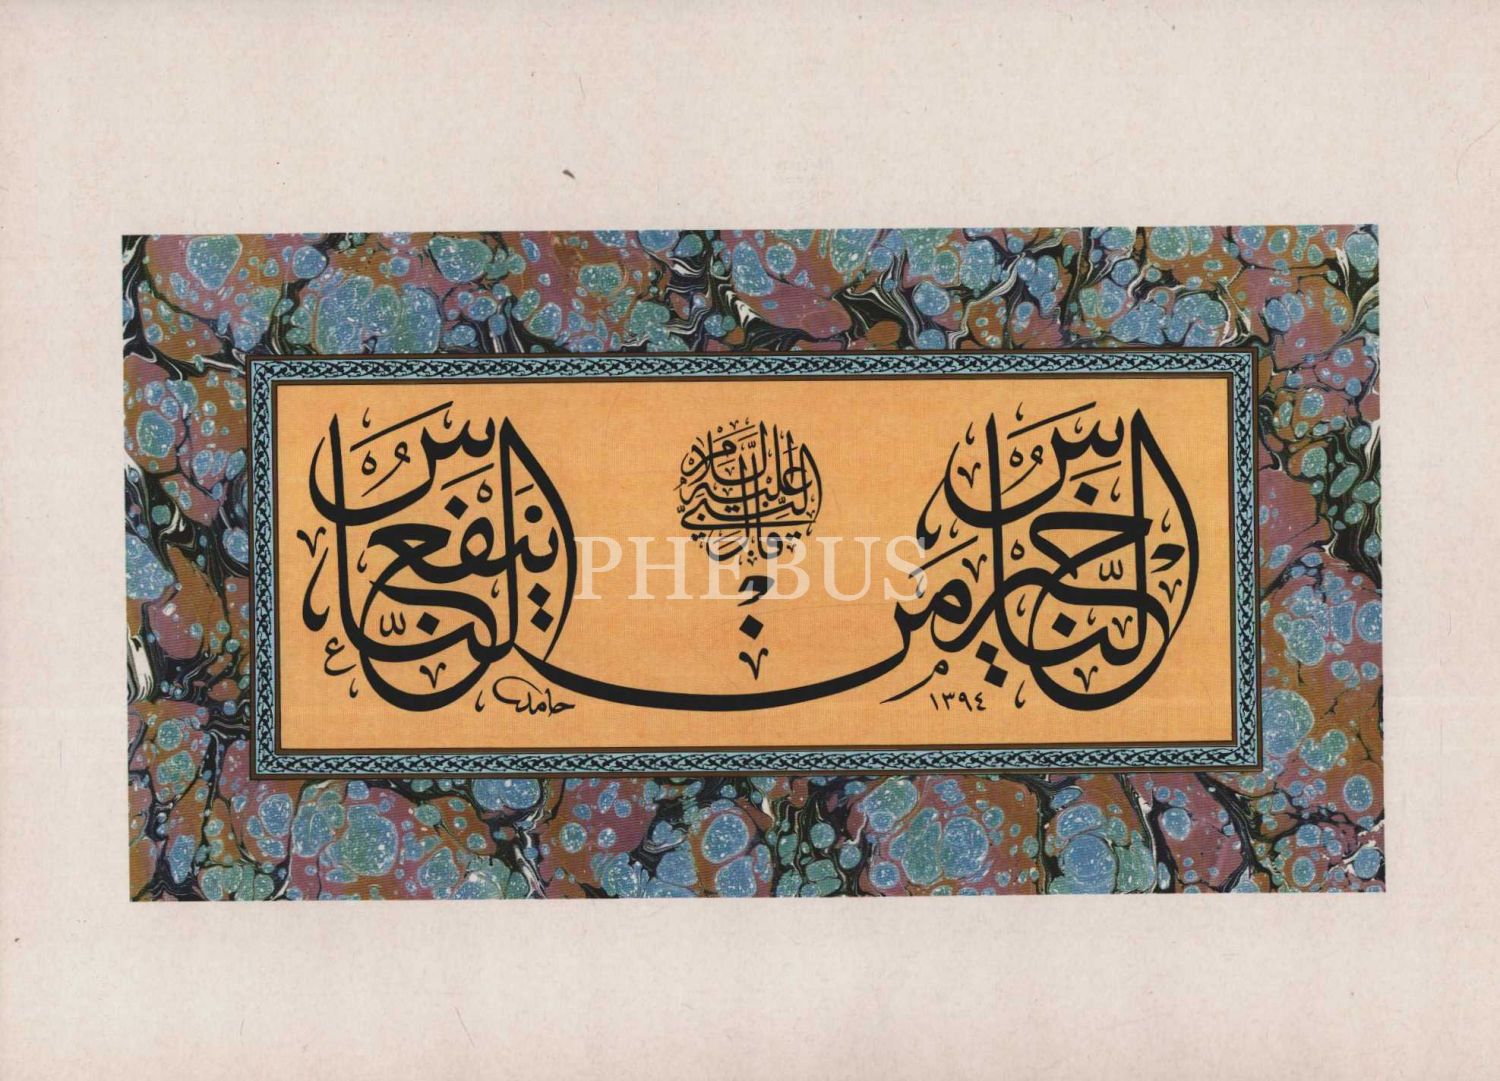 قال النبي عليه السلام
خَيْرُ النَّاسِ مَنْ يَنْفَعُ النَّاسَ
حامد
١٣٩٤
PHEBUS